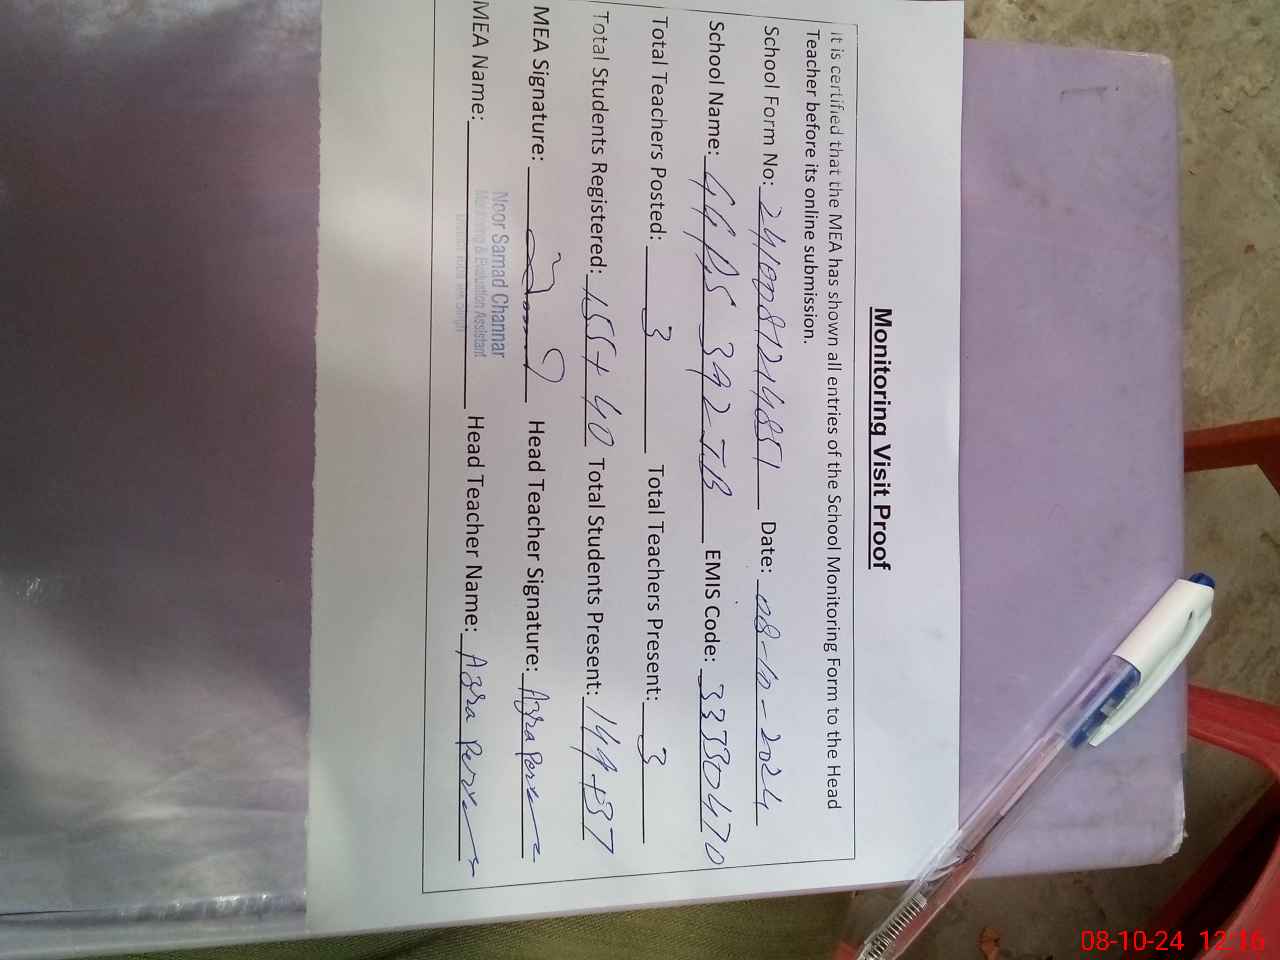 Monitoring Visit Proof
It is certified that the MEA has shown all entries of the School Monitoring Form to the Head
Teacher before its online submission.
School Form No: 2410081214851 Date: 08-10-2024
School Name: GGPS 392 T.B EMIS Code: 33330470
Total Teachers Posted: 3 Total Teachers Present: 3
Total Students Registered: 155+40 Total Students Present: 149+37
MEA Signature: Head Teacher Signature: Azra
MEA Name: Noor Samad Channar Head Teacher Name: Azra Perveen
Monitoring & Evaluation Assistant
08-10-24 12:16